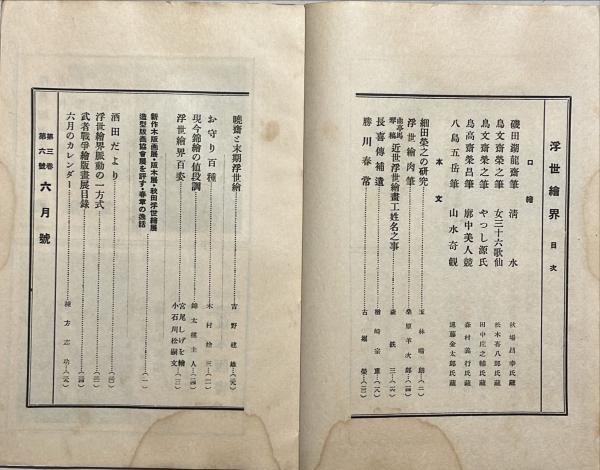 浮世繪界 目次
口繪
磯田湖龍齋筆 清水 秋場昌幸氏藏
鳥文齋榮之筆 女三十六歌仙 松木喜八郎氏藏
鳥文齋榮之筆 やつし源氏 田中庄之輔氏藏
鳥高齋榮昌筆 廓中美人競 森村義行氏藏
八島五岳筆 山水奇觀 遠藤金太郎氏藏
本文
細田榮之の研究 玉林晴朗…(二)
浮世繪肉筆 桑原羊次郎…
近世浮世繪畫工姓名之事 森銑三…
長喜傳補遺 楢崎宗重…
勝川春常 古堀榮…
曉齋と末期浮世繪 吉野建雄…
お守り百種 木村捨三…
現今錦繪の値段調 錦太樓主人…
浮世繪界百姿 宮尾しげを繪 小石川松嗣文…
新作木版画展・版木展・秋田浮世繪展
造型版画協會展を評す・春章の逸話…(一)
酒田だより…
浮世繪界脈動の一方式…
武者戰爭繪版畫展目録…
六月のカレンダー… 棟方志功…
第三卷 第六號 六月號